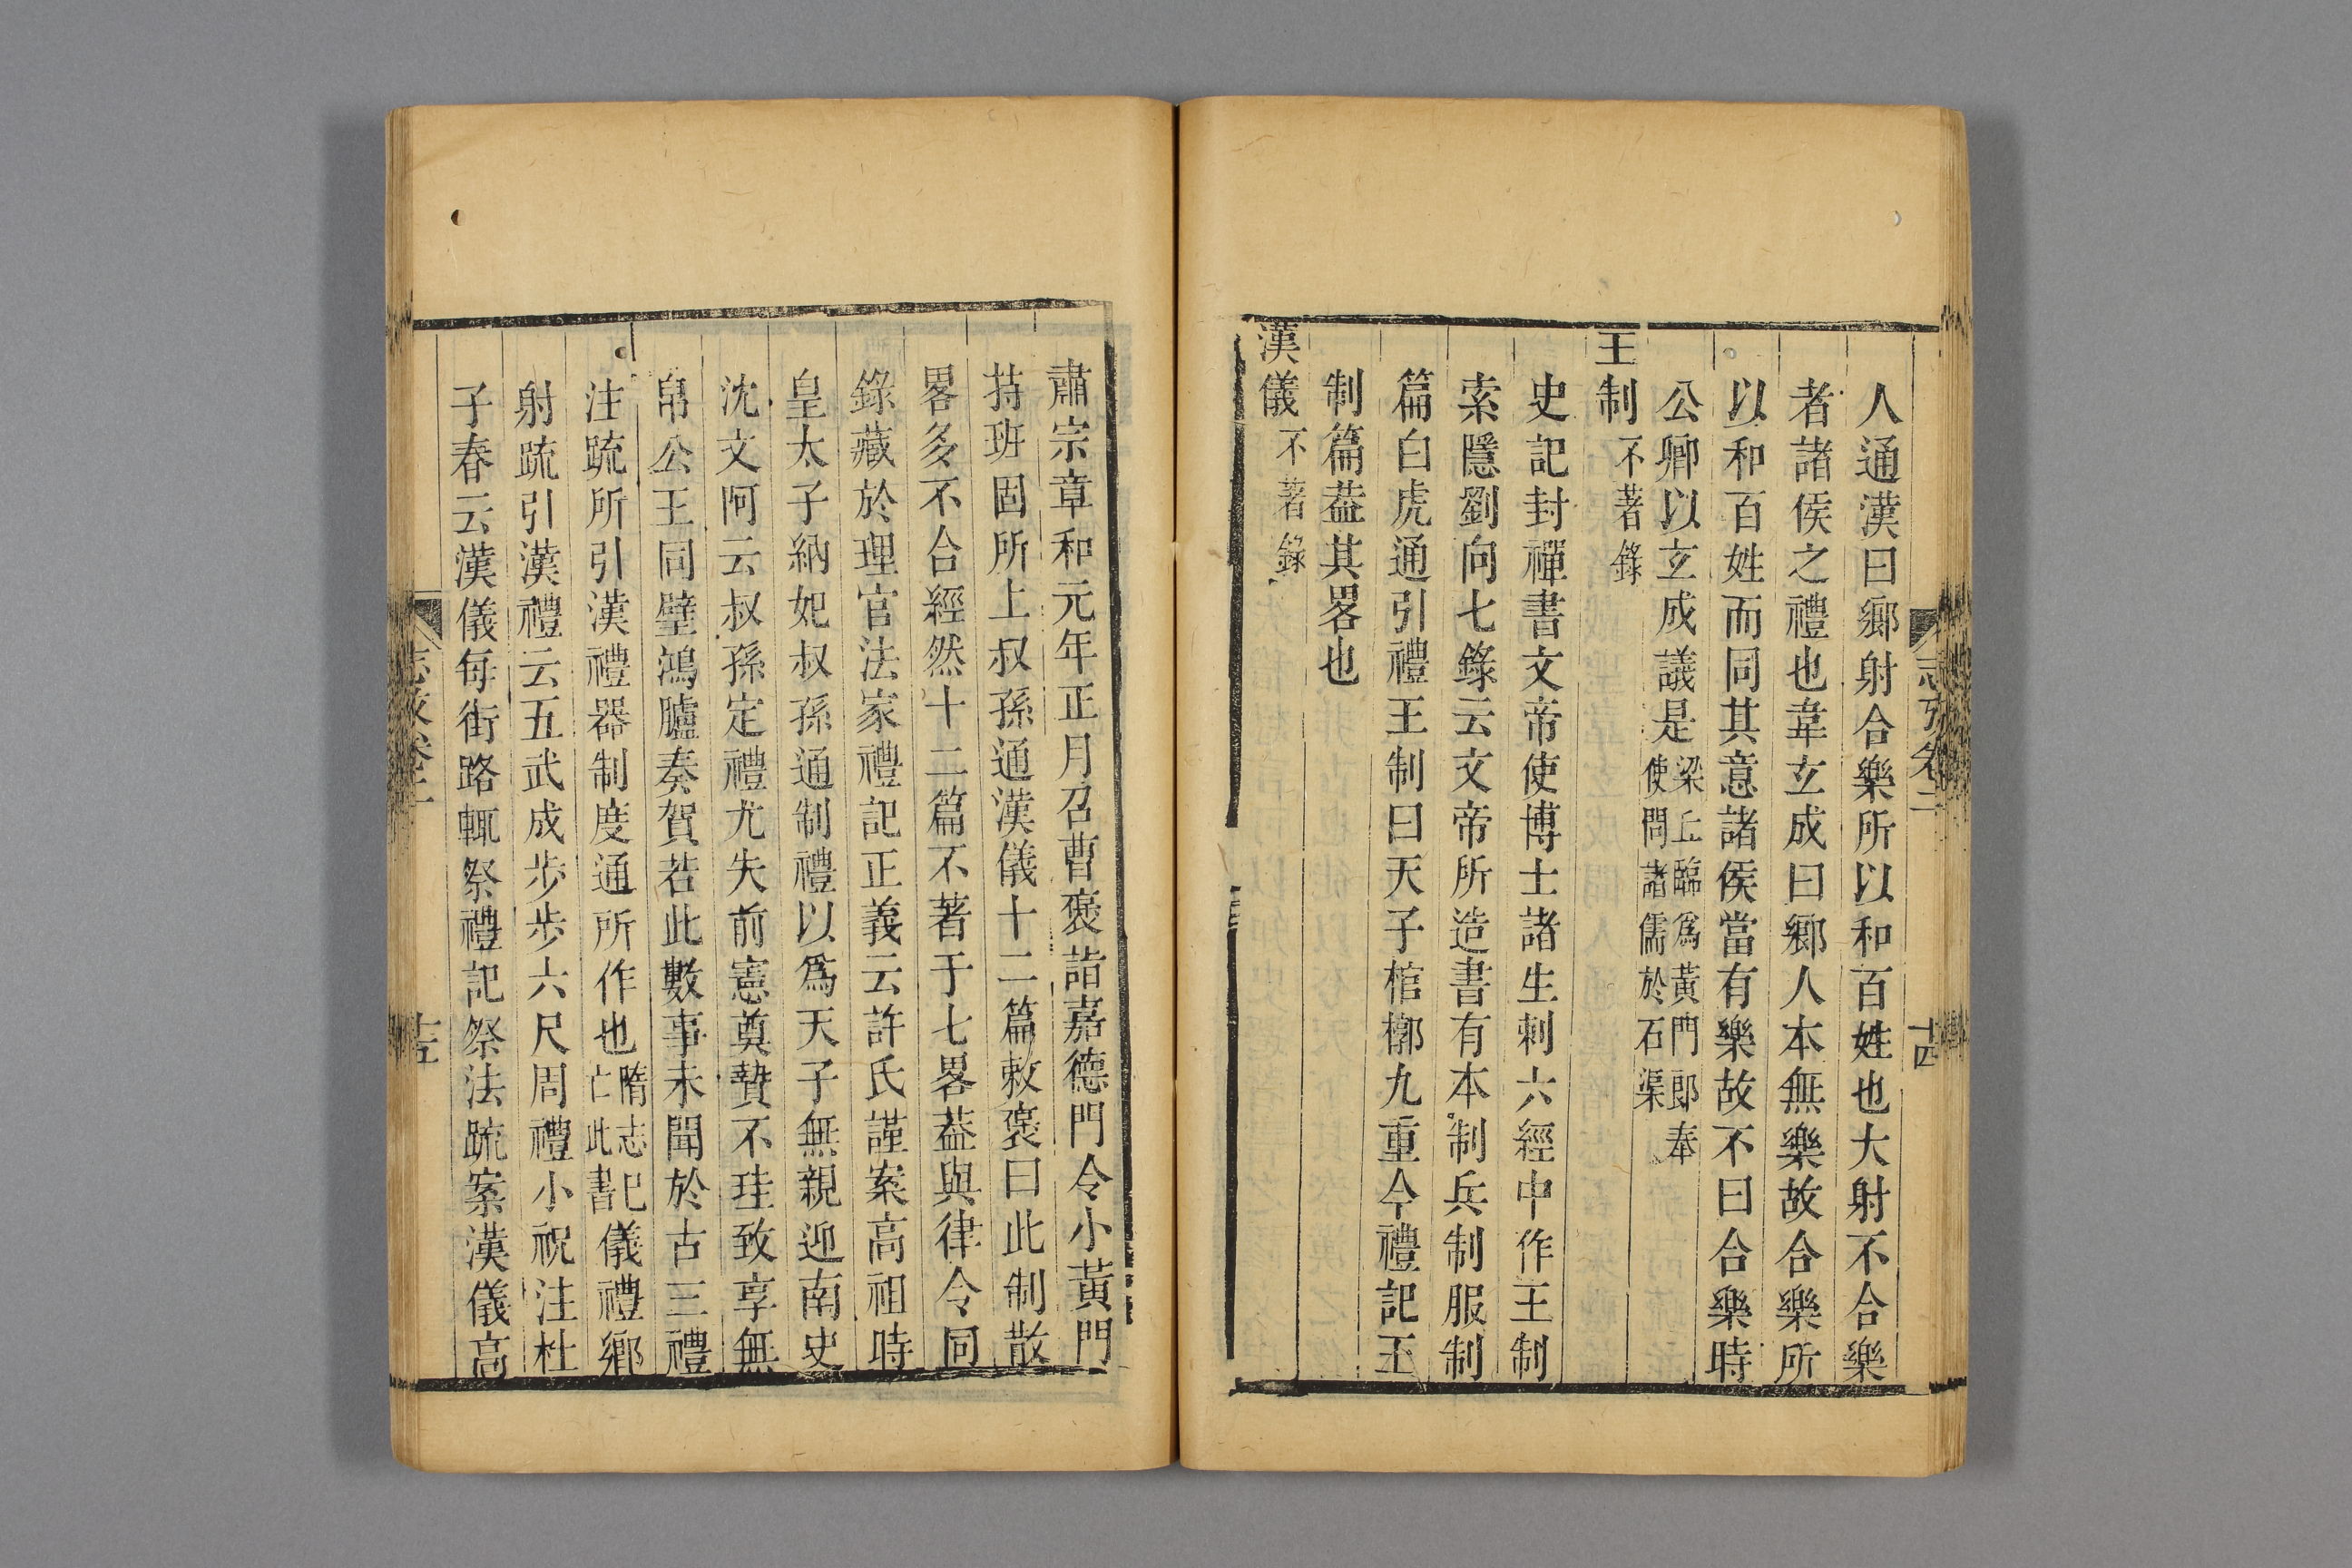 人通漢曰鄉射合樂所以和百姓也大射不合樂
者諸侯之禮也韋玄成曰鄉人本無樂故合樂所
以和百姓而同其意諸侯當有樂故不曰合樂時
公卿以玄成議是梁丘臨爲黃門郎奉使問諸儒於石渠
王制不著錄
史記封禪書文帝使博士諸生刺六經中作王制
索隱劉向七錄云文帝所造書有本制兵制服制
篇白虎通引禮王制曰天子棺槨九重今禮記王
制篇葢其畧也
漢儀不著錄
十四
肅宗章和元年正月召曹褒詣嘉德門令小黃門
持班固所上叔孫通漢儀十二篇敕褒曰此制散
畧多不合經然十二篇不著于七畧葢與律令同
錄藏於理官法家禮記正義云許氏謹案高祖時
皇太子納妃叔孫通制禮以爲天子無親迎南史
沈文阿云叔孫定禮尤失前憲奠贄不珪致享無
帛公王同璧鴻臚奏賀若此數事未聞於古三禮
注疏所引漢禮器制度通所作也隋志已亡此書儀禮鄉
射疏引漢禮云五武成步步六尺周禮小祝注杜
子春云漢儀每街路輒祭禮記祭法疏案漢儀高
十五